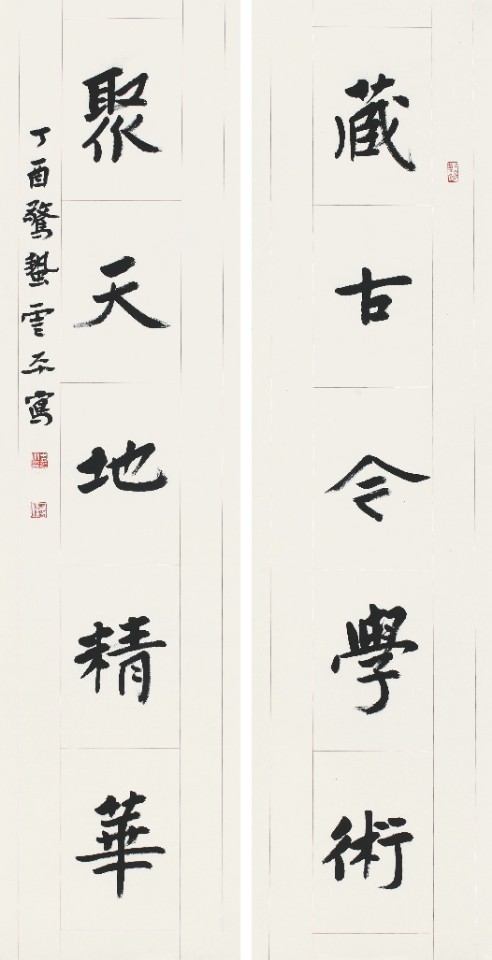 藏古今學術
聚天地精華
丁酉驚蟄雲平寫